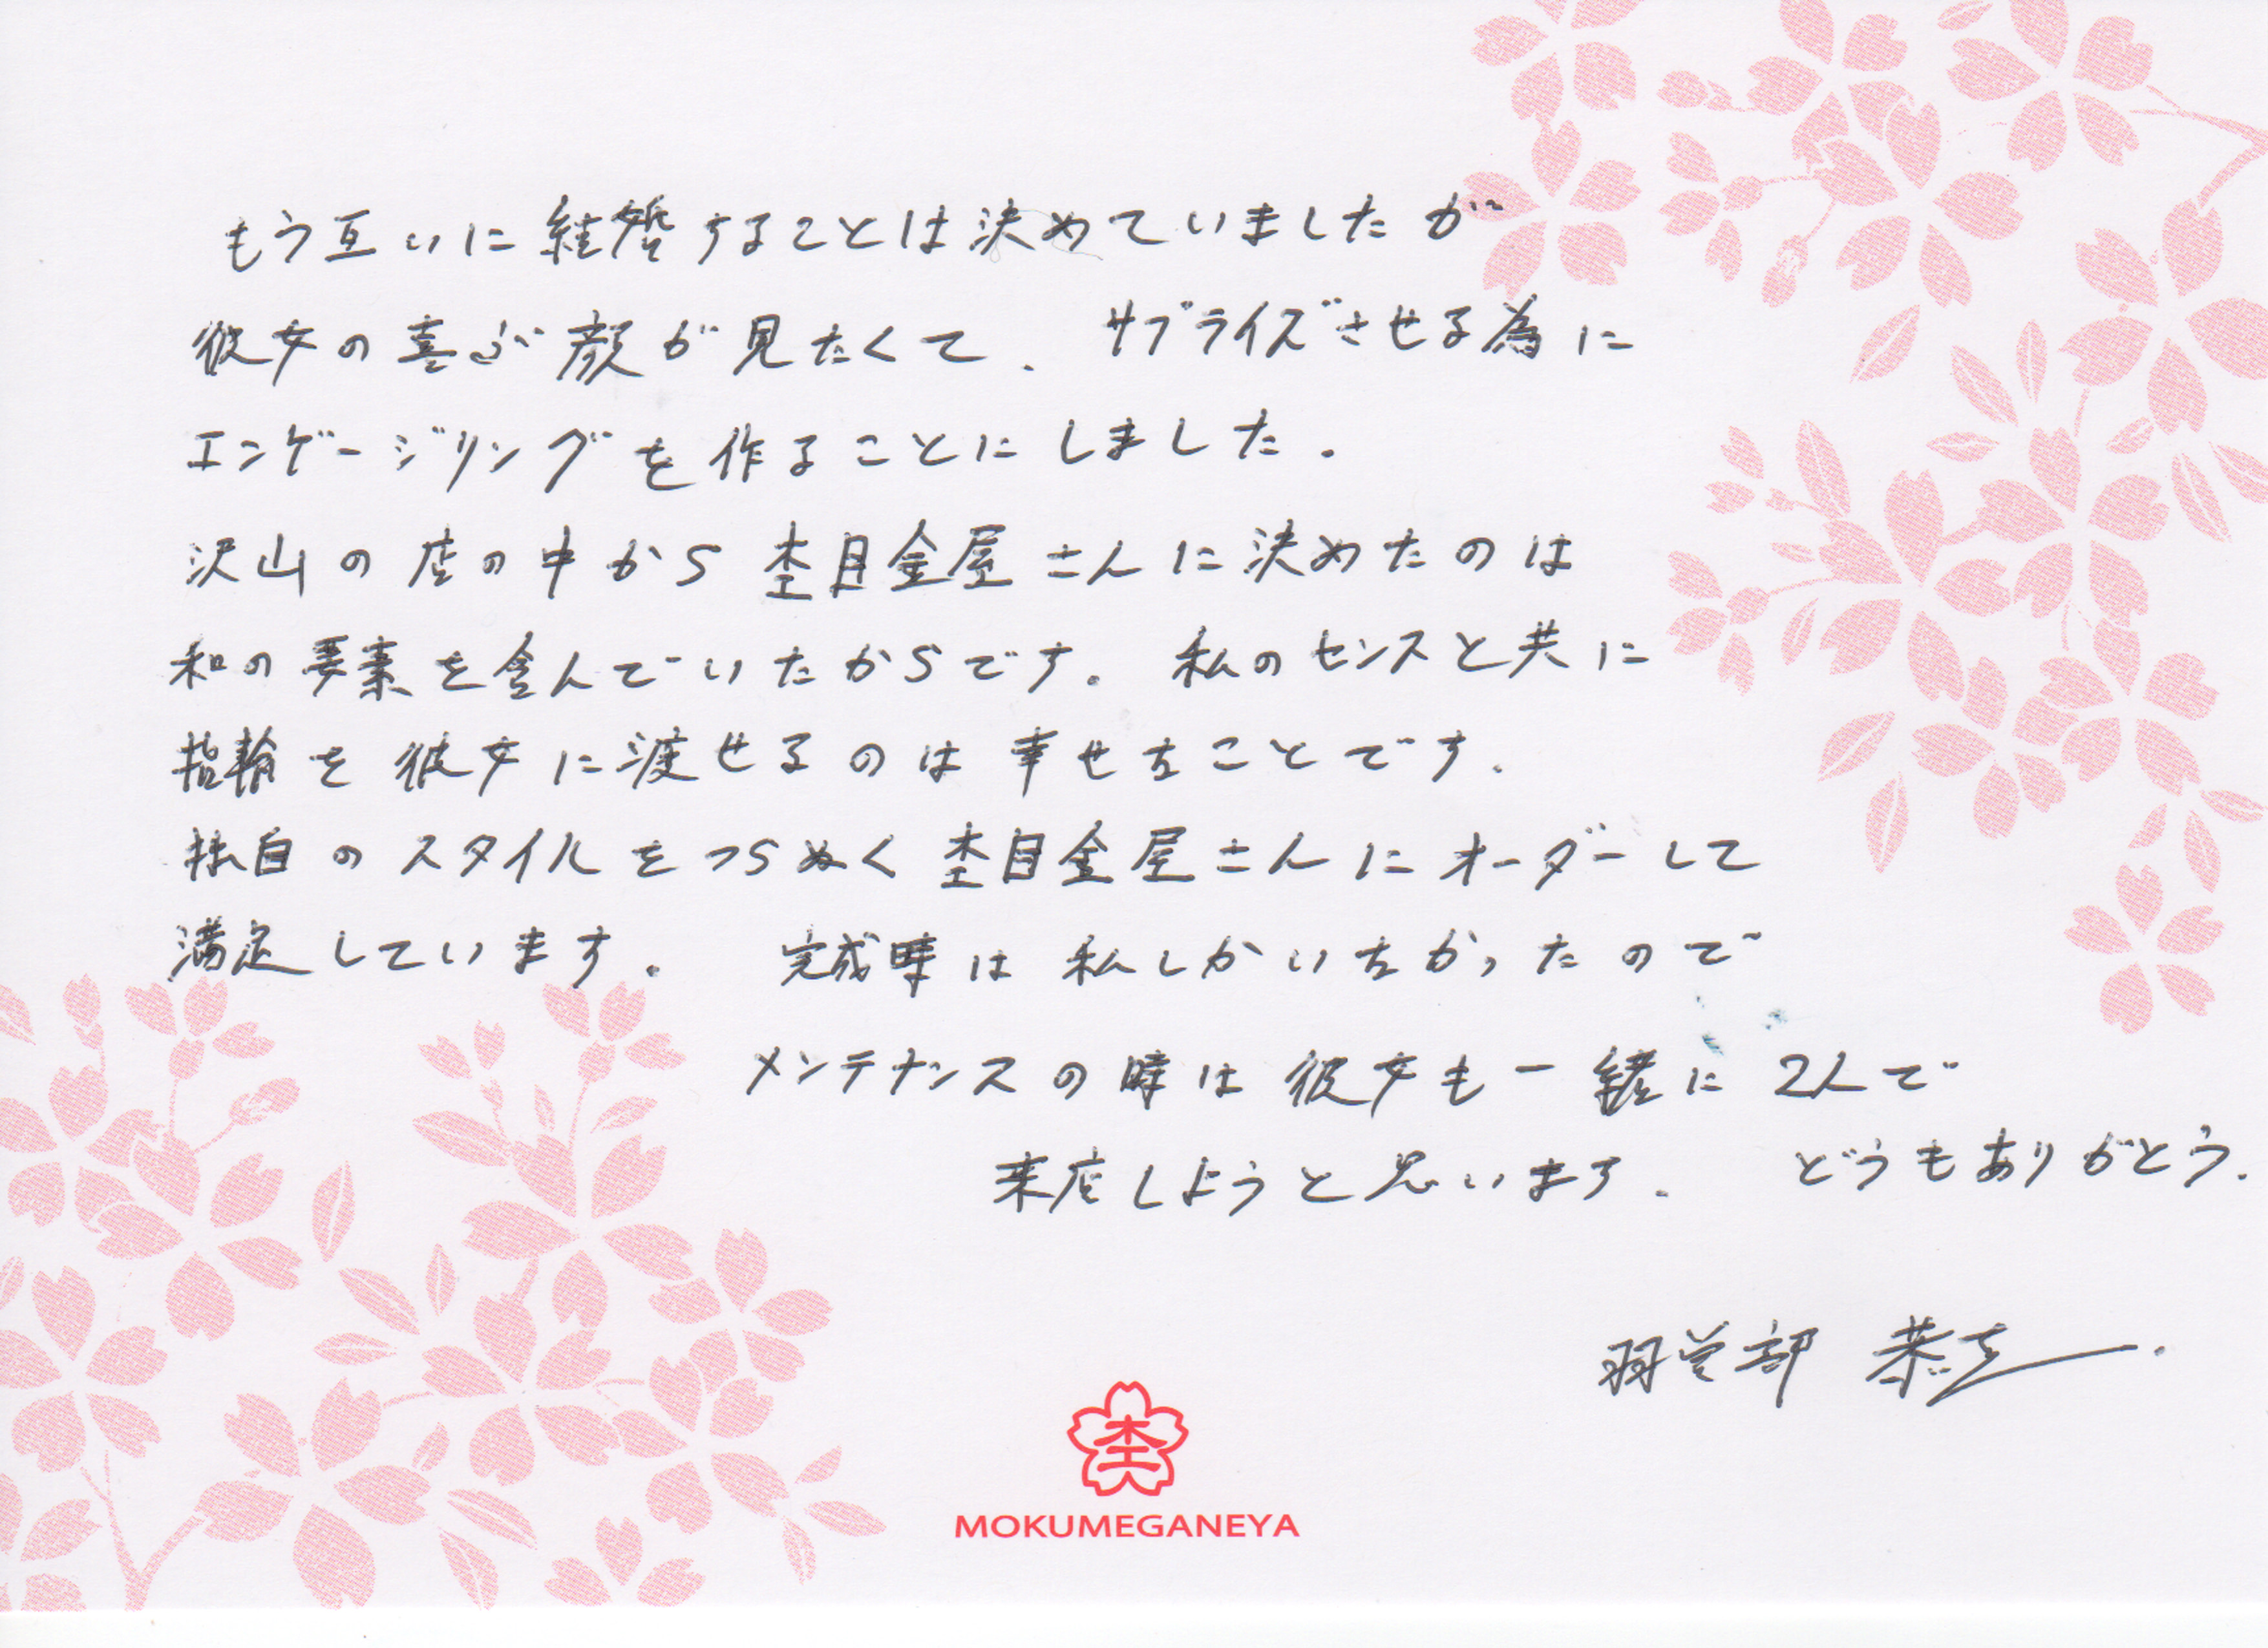 もう互いに結婚することは決めていましたが
彼女の喜ぶ顔が見たくて、サプライズさせる為に
エンゲージリングを作ることにしました。
沢山の店の中から杢目金屋さんに決めたのは
和の要素を含んでいたからです。私のセンスと共に
指輪を彼女に渡せるのは幸せなことです。
独自のスタイルをつらぬく杢目金屋さんにオーダーして
満足しています。 完成時は私しかいなかったので
メンテナンスの時は彼女も一緒に2人で
来店しようと思います。 どうもありがとう。
杢
MOKUMEGANEYA